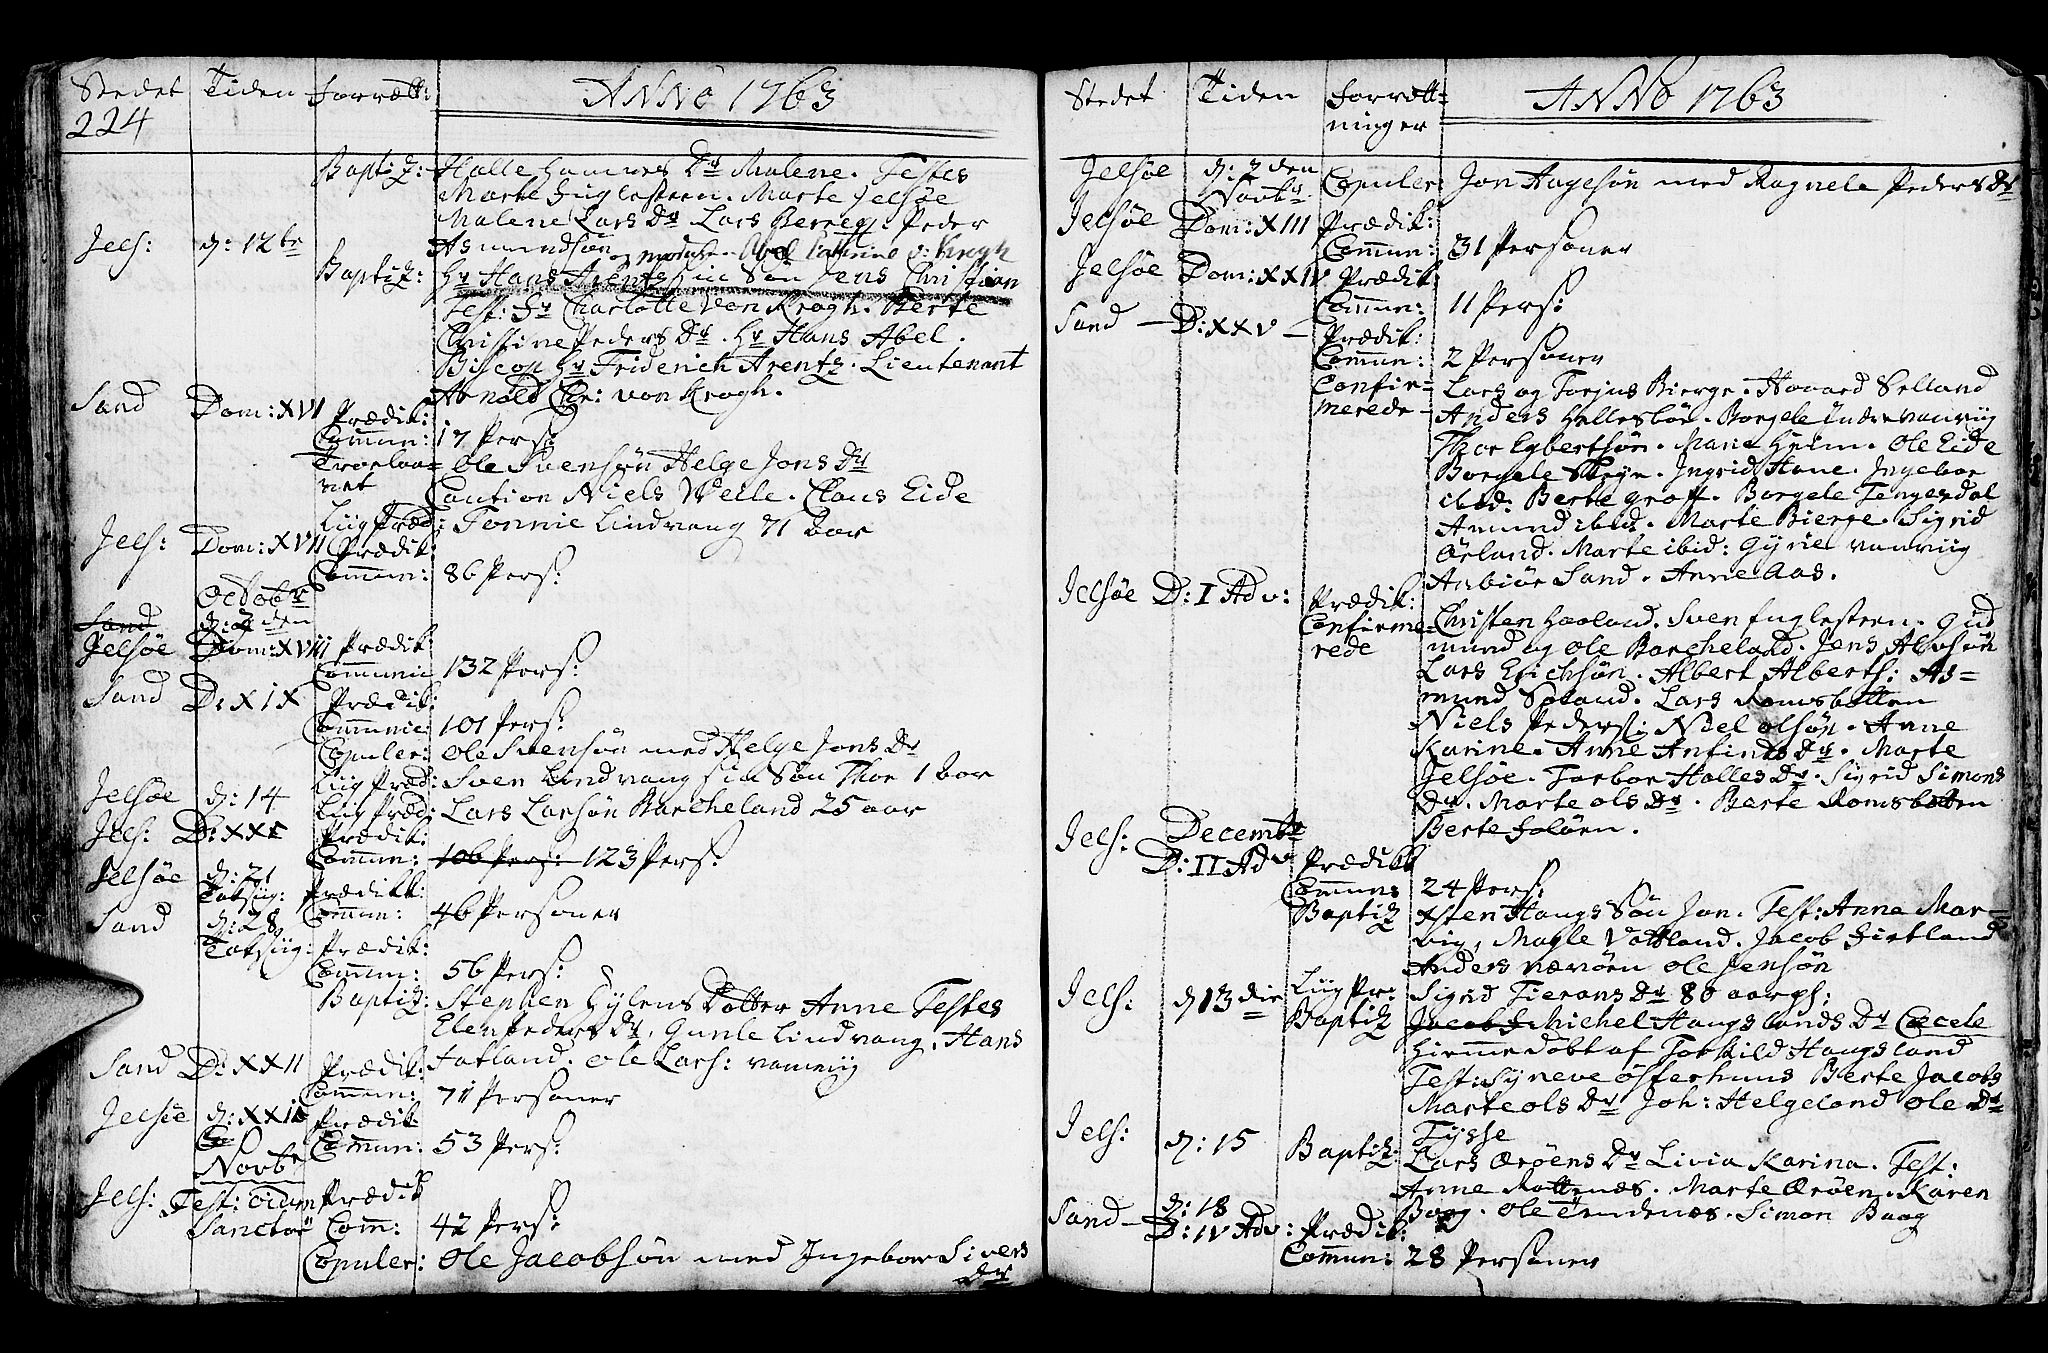 Stedet Tiden Forrett: ANNO 1763
224
Baptiz: Halle hannes Dr Malene. Testes
Marte Fuglesteen. Marte Jelsøe
Malene Lars Dr Lars Berreg. Peder
Jels: d: 12te Asmundsøn og moder: Abel Cathrine v: Krogh
Baptiz: Hr Hans Arentz sin Søn Jens Christian
Test: Fr Charlotte von Krogh. Berte
Christine Peders Dr. Hr Hans Abel.
Biscop Hr Friderich Arentz. Lieutenant
Arnold Chr: von Krogh.
Sand Dom: XVI Prædik:
Commun: 17 Pers:
Troelaanet Ole Svensøn Helge Jons Dr
Caution Niels Welle. Claus Eide
Liig Præd: Tonnie Lindvang 71 aar
Jels: Dom: XVII Prædik:
Commun: 86 Pers:
Octobr
Sand d: 2den
Jelsøe Dom: XVIII Prædik:
Communic 132 Pers:
Sand D: XIX Prædik:
Communic 101 Pers:
Copuler: Ole Svensøn med Helge Jons Dr
Liig Præd: Sven Lindvang sin Søn Thor 1 aar
Jelsøe d: 14 Liig Præd: Lars Larsøn Barcheland 25 aar
Jels: D: XXI Prædik:
Commun: 106 Pers: 123 Pers:
Jelsøe d: 21 Taksiig: Prædik:
Commun: 46 Personer
Sand d: 28 Taksiig: Prædik:
Commun: 56 Pers:
Baptiz: Stephen Hylens Dotter Anne Testes
Elen Peders Dr. Gunle Lindvang, Hans
Fatland. Ole Lars: vanviig
Sand D: XXII Prædik:
Commun: 71 Personer
Jelsøe d: XXIII Prædik:
Commun: 53 Pers:
Novbr
Jels: Fest: Oium Sanctor Prædik
Com: 42 Pers:
Copuler: Ole Jacobsøn med Ingebor Sivers
Dr
Stedet Tiden Forrettninger ANNO 1763
Jelsøe d: 2den Novbr Copuler Jon Aagesøn med Ragnele Peders Dr
Jelsøe Dom: XIII Prædik:
Commun: 31 Personer
Jelsøe Dom: XXIV Prædik:
Commun: 11 Pers:
Sand – D: XXV – Prædik:
Commun: 2 Personer
Confirmerede – Lars og Torjus Bierge. Haavard Selland
Anders Hellesbøe. Borgele Indre vanviig
Thor Egbertsøn. Marie Hylen. Ole Eide
Borgele Steyn. Ingrid Hane. Ingebor
ibid. Berte Groff. Borgele Tengesdal
Amund ibid. Marte Bierge. Sigrid
Ørland. Marte ibid: Gyrie vanviig
Anbiør Sand. Anne Aas.
Jelsøe D: I Adv: Prædik:
Confirmerede Christen Haaland. Sven Fuglesteen. Gud
mund og Ole Barcheland. Jens Alvsøn
Lars Erichsøn. Albert Alberts: As=
mund Soland. Lars Romsbotten
Niels Peders: Niel olsøn. Anne
Karine. Anne Anfinds Dr. Marte
Jelsøe. Torbor Halles Dr. Sigrid Simons
Dr. Marte ols Dr. Berte Romsbotten
Berte Foløen.
Jels: Decembr
D: II Adv Prædik
Commun 24 Pers:
Baptiz Østen Haugs Søn Jon. Test: Anne Mar=
vig, Magle Vattland. Jacob Fietland
Anders nærøen Ole Jensøn
Jels: d 13die Liig Pr: Sigrid Tierans Dr 80 aar
Baptiz Michel Haugslands Dr Cecele
Hiemmedøbt af Torkild Haugsland
Test: Syneve østerhuus Berte Jacobs
Marte ols Dr Joh: Helgeland Ole
Tysse
Jels: d: 15 Baptiz: Lars Ærøens Dr Livia Karina. Test:
Anne Rottnæs. Marte Ærøen. Karen
Baag. Ole Tendenæs. Simon Baag
Sand – d: 18
D: IV Adv: Prædik:
Commun: 28 Personer